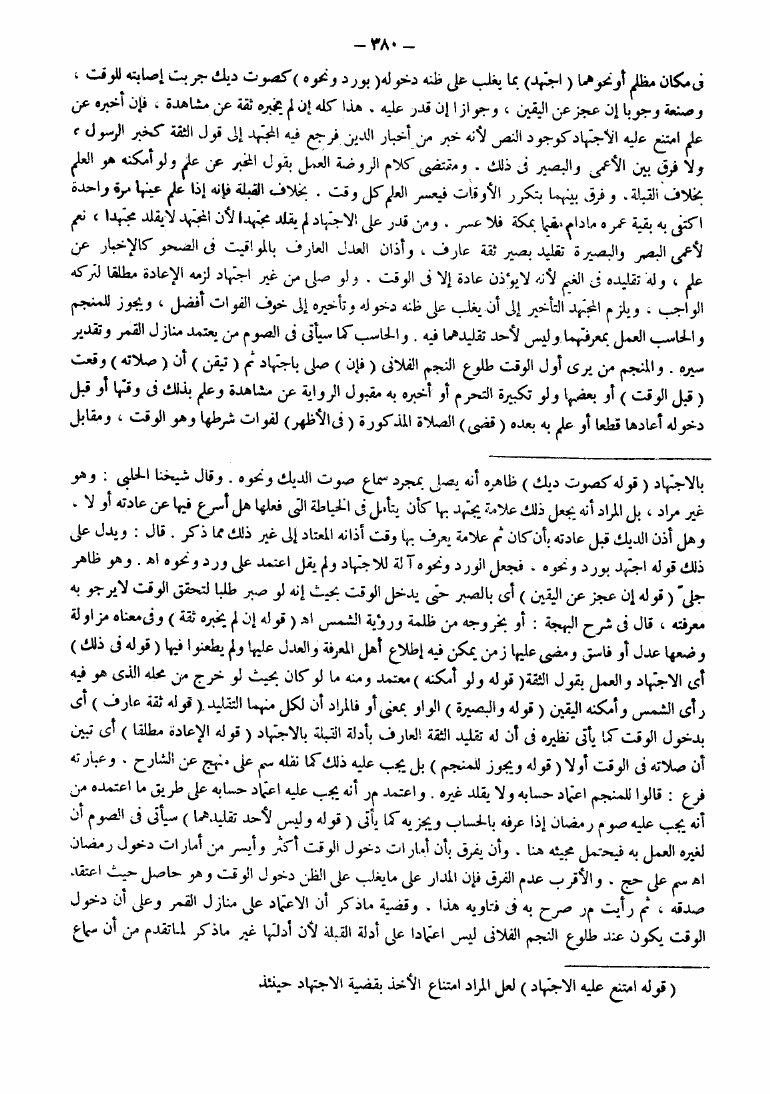 – ٣٨٠ –
فى مكان مظلم أو نحوهما ( اجتهد) بما يغلب على ظنه دخوله( بورد ونحوه ) كصوت ديك جربت إصابته للوقت ،
وصنعة وجوبا إن عجز عن اليقين ، وجوازا إن قدر عليه . هذا كله إن لم يخبره ثقة عن مشاهدة ، فإن أخبره عن
علم امتنع عليه الاجتهاد كوجود النص لأنه خبر من أخبار الدين فرجع فيه المجتهد إلى قول الثقة كخبر الرسول ،
ولا فرق بين الأعمى والبصير فى ذلك . ومقتضى كلام الروضة العمل بقول المخبر عن علم ولو أمكنه هو العلم
بخلاف القبلة. وفرق بينهما بتكرر الأوقات فيعسر العلم كل وقت . بخلاف القبلة فإنه إذا علم عينها مرة واحدة
اكتفى به بقية عمره مادام مقيما بمكة فلا عسر . ومن قدر على الاجتهاد لم يقلد مجتهدا لأن المجتهد لايقلد مجتهدا ، نعم
لأعمى البصر والبصيرة تقليد بصير ثقة عارف ، وأذان العدل العارف بالمواقيت فى الصحو كالإخبار عن
علم ، وله تقليده فى الغيم لأنه لايؤذن عادة إلا فى الوقت . ولو صلى من غير اجتهاد لزمه الإعادة مطلقا لتركه
الواجب ، ويلزم المجتهد التأخير إلى أن يغلب على ظنه دخوله وتأخيره إلى خوف الفوات أفضل ، ويجوز للمنجم
والحاسب العمل بمعرفتهما وليس لأحد تقليدهما فيه . والحاسب كما سيأتى فى الصوم من يعتمد منازل القمر وتقدير
سيره . والمنجم من يرى أول الوقت طلوع النجم الفلانى ( فإن ) صلى باجتهاد ثم ( تيقن ) أن ( صلاته ) وقعت
( قبل الوقت ) أو بعضها ولو تكبيرة التحرم أو أخبره به مقبول الرواية عن مشاهدة وعلم بذلك فى وقتها أو قبل
دخوله أعادها قطعا أو علم به بعده ( قضى ) الصلاة المذكورة ( فى الأظهر ) لفوات شرطها وهو الوقت ، ومقابل
بالاجتهاد ( قوله كصوت ديك ) ظاهره أنه يصلى بمجرد سماع صوت الديك ونحوه . وقال شيخنا الحلبى : وهو
غير مراد ، بل المراد أنه يجعل ذلك علامة يجتهد بها كأن يتأمل فى الخياطة التى فعلها هل أسرع فيها عن عادته أو لا .
وهل أذن الديك قبل عادته بأن كان ثم علامة يعرف بها وقت أذانه المعتاد إلى غير ذلك مما ذكر . قال : ويدل على
ذلك قوله اجتهد بورد ونحوه . فجعل الورد ونحوه آلة للاجتهاد ولم يقل اعتمد على ورد ونحوه اه . وهو ظاهر
جلىّ ( قوله إن عجز عن اليقين ) أى بالصبر حتى يدخل الوقت بحيث إنه لو صبر طلبا لتحقق الوقت لايرجو به
معرفته ، قال فى شرح البهجة : أو بخروجه من ظلمة ورؤية الشمس اه ( قوله إن لم يخبره ثقة ) وفى معناه مزاولة
وضعها عدل أو فاسق ومضى عليها زمن يمكن فيه إطلاع أهل المعرفة والعدل عليها ولم يطعنوا فيها ( قوله فى ذلك )
أى الاجتهاد والعمل بقول الثقة( قوله ولو أمكنه ) معتمد ومنه ما لو كان بحيث لو خرج من محله الذى هو فيه
رأى الشمس وأمكنه اليقين ( قوله والبصيرة ) الواو بمعنى أو فالمراد أن لكل منهما التقليد ( قوله ثقة عارف ) أى
بدخول الوقت كما يأتى نظيره فى أن له تقليد الثقة العارف بأدلة القبلة بالاجتهاد ( قوله الإعادة مطلقا ) أى تبين
أن صلاته فى الوقت أولا ( قوله ويجوز للمنجم ) بل يجب عليه ذلك كما نقله سم على منهج عن الشارح . وعبارته
فرع : قالوا للمنجم اعتماد حسابه ولا يقلد غيره . واعتمد مر أنه يجب عليه اعتماد حسابه على طريق ما اعتمده من
أنه يجب عليه صوم رمضان إذا عرفه بالحساب ويجزيه كما يأتى ( قوله وليس لأحد تقليدهما ) سيأتى فى الصوم أن
لغيره العمل به فيحتمل مجيئه هنا . وأن يفرق بأن أمارات دخول الوقت أكثر وأيسر من أمارات دخول رمضان
اه سم على حج . والأقرب عدم الفرق فإن المدار على مايغلب على الظن دخول الوقت وهو حاصل حيث اعتقد
صدقه ، ثم رأيت مر صرح به فى فتاويه هذا . وقضية ماذكر أن الاعتماد على منازل القمر وعلى أن دخول
الوقت يكون عند طلوع النجم الفلانى ليس اعتمادا على أدلة القبلة لأن أدلتها غير ماذكر لماتقدم من أن سماع
( قوله امتنع عليه الاجتهاد ) لعل المراد امتناع الأخذ بقضية الاجتهاد حينئذ